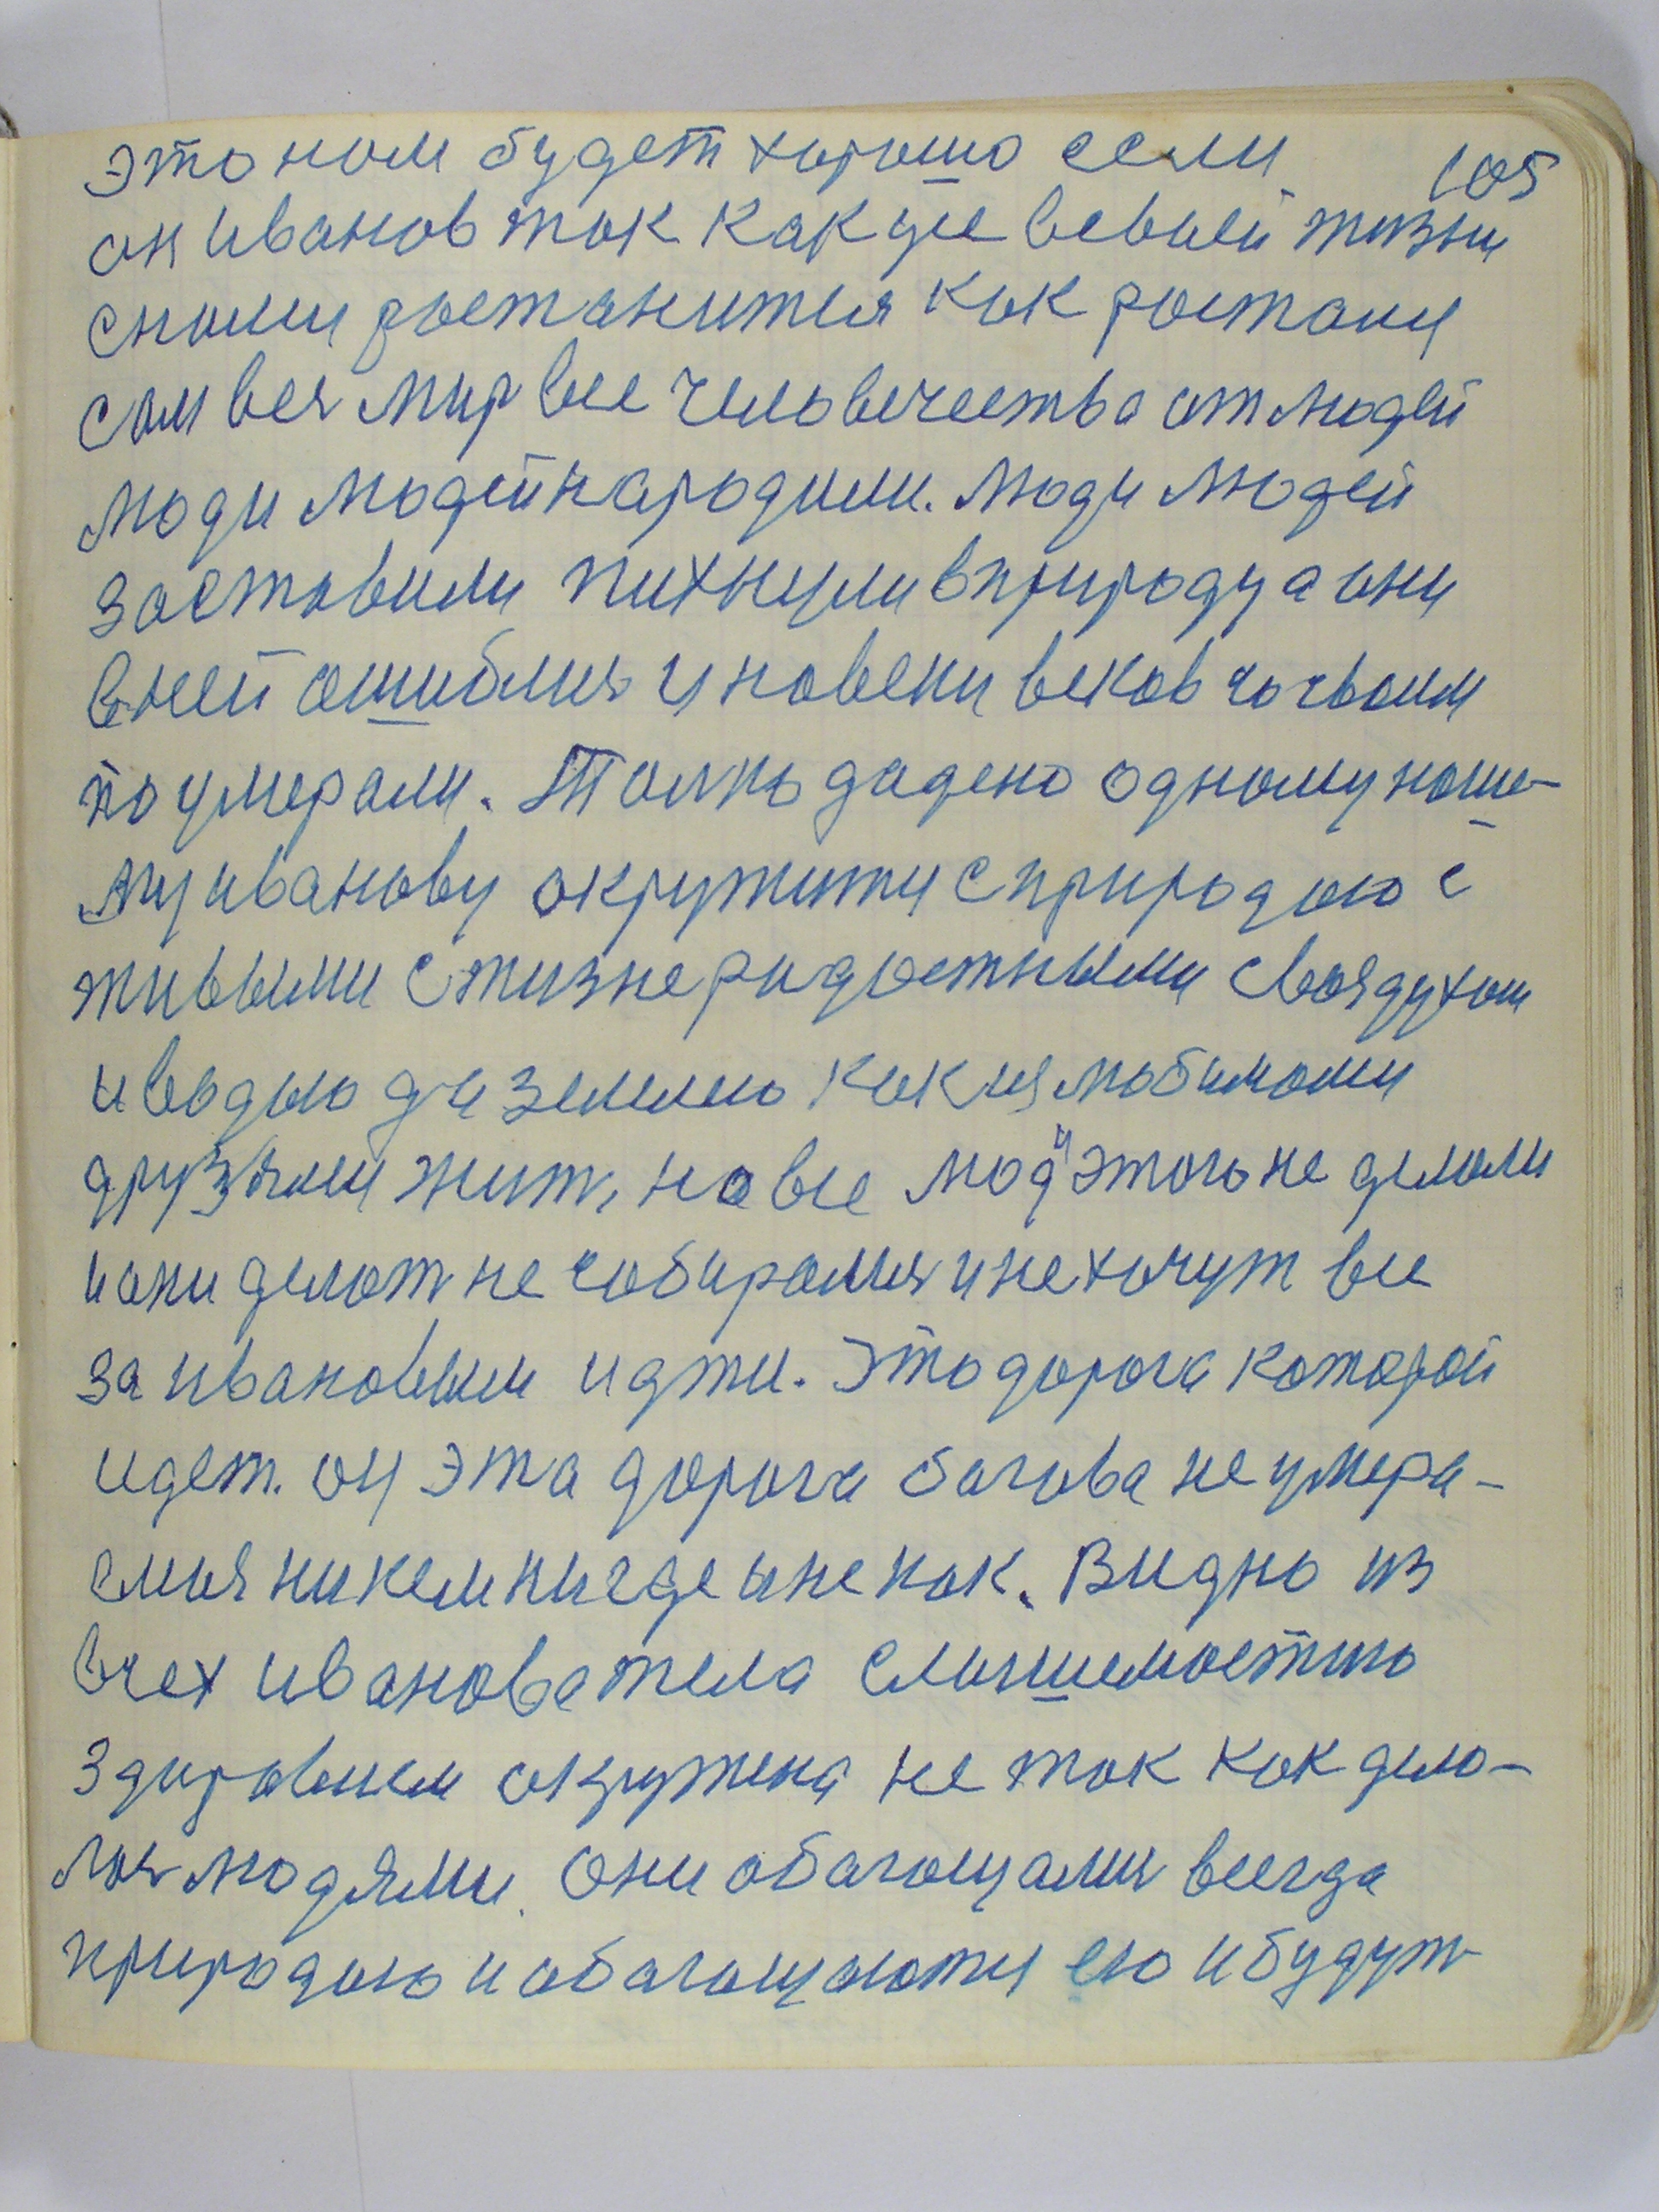 это нам будет хорошо если 105
он Иванов так как уже в свией жизни
с нами растанится как растани
сам вся мир все человечества от людей
люди людей народили. Люди людей
заставили пихнули в природу а они
в ней ошиблися и на веки веков
по умерали. Толькь дадено одному наше-
му Иванову окружити с природою с
живыми с жизнерадостными с воздухом
и водою да землею как из любимами
друзями жит, но все люди этого не делали
и они делат не собиралися и не хочут все
за Ивановым идти. Это дорога каторой
идет. он эта дорога багова не умера-
емия никем нигде и не как. Видно из
всех Иванова тела слышемостию
здировием окружена не так как дела-
лося людями. Они абагощалися всегда
природою и абагощаюти ею и будут